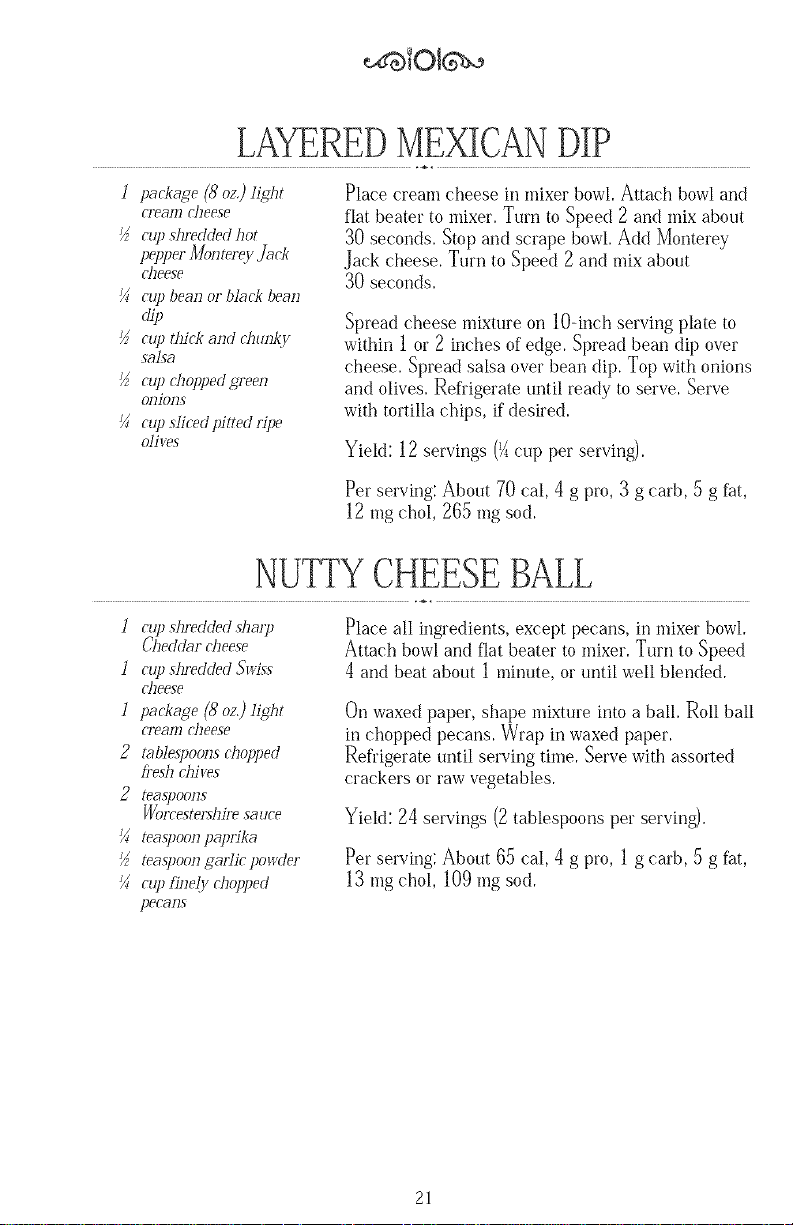 LAYERED MEXICAN DIP
1 package (8 oz.) light
cream cheese
½ cup shredded hot
pepper Monterey Jack
cheese
¼ cup bean or black bean
dip
½ cup thick and chunky
salsa
½ cup chopped green
onions
¼ cup sliced pitted ripe
olives
Place cream cheese in mixer bowl. Attach bowl and
flat beater to mixer. Turn to Speed 2 and mix about
30 seconds. Stop and scrape bowl. Add Monterey
Jack cheese. Turn to Speed 2 and mix about
30 seconds.
Spread cheese mixture on 10-inch serving plate to
within 1 or 2 inches of edge. Spread bean dip over
cheese. Spread salsa over bean dip. Top with onions
and olives. Refrigerate until ready to serve. Serve
with tortilla chips, if desired.
Yield: 12 servings (¼ cup per serving).
Per serving: About 70 cal, 4 g pro, 3 g carb, 5 g fat,
12 mg chol, 265 mg sod.
NUTTY CHEESE BALL
1 cup shredded sharp
Cheddar cheese
1 cup shredded Swiss
cheese
1 package (8 oz.) light
cream cheese
2 tablespoons chopped
fresh chives
2 teaspoons
Worcestershire sauce
¼ teaspoon paprika
½ teaspoon garlic powder
¼ cup finely chopped
pecans
Place all ingredients, except pecans, in mixer bowl.
Attach bowl and flat beater to mixer. Turn to Speed
4 and beat about 1 minute, or until well blended.
On waxed paper, shape mixture into a ball. Roll ball
in chopped pecans. Wrap in waxed paper.
Refrigerate until serving time. Serve with assorted
crackers or raw vegetables.
Yield: 24 servings (2 tablespoons per serving).
Per serving: About 65 cal, 4 g pro, 1 g carb, 5 g fat,
13 mg chol, 109 mg sod.
21